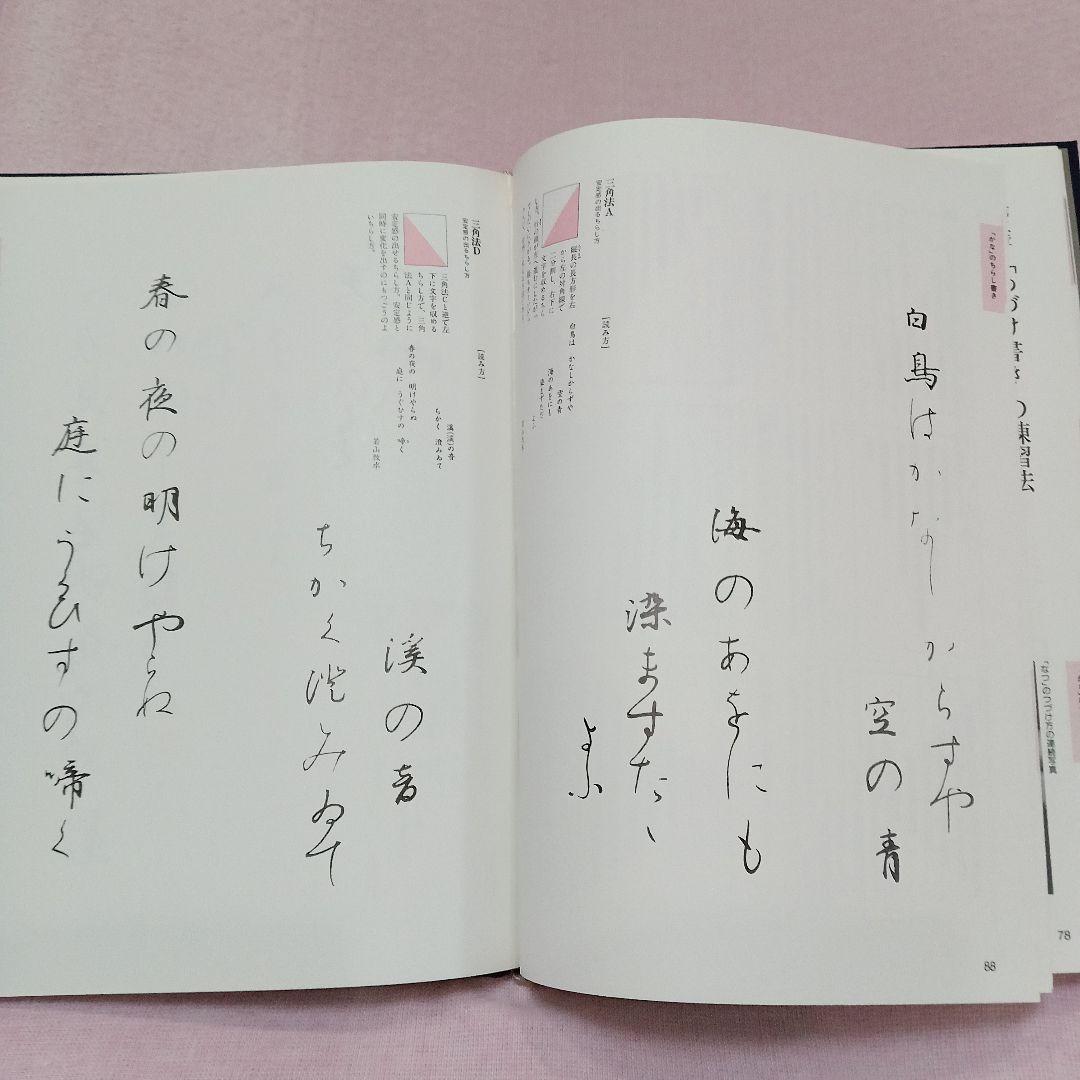 「かな」のちらし書き
白鳥はかなしからすや
空の青
海のあをにも
染ますたゝ
よふ
三角法A
安定感の出るちらし方
縦長の長方形を右
から左の対角線で
二分割し、右下に
文字を収めるちら
[読み方]
白鳥は かなしからずや
空の青
海のあをにも
染まずただ
よふ
88
78
つづけ書きの練習法
「なつ」のつづけ方の連続写真
三角法D
安定感の出るちらし方
三角法Cと逆で左
下に文字を収める
ちらし方で、三角
法Aと同じように
安定感の出せるちらし方。安定感と
同時に変化を出すのにもつごうのよ
いちらし方。
[読み方]
溪(渓)の音
ちかく 澄みゐて
春の夜の 明けやらぬ
庭に うぐひすの 啼く
若山牧水
溪の音
ちかく澄みゐて
春の夜の明けやらぬ
庭にうくひすの啼く